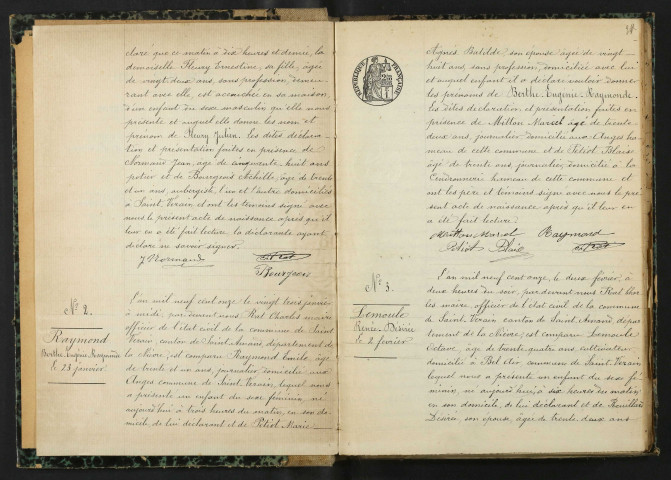 clare que ce matin à dix heures et demie, la
demoiselle Fleury Ernestine, sa fille, âgée
de vingt deux ans, sans profession, demeu-
rant avec elle, est accouchée en sa maison
d'un enfant du sexe masculin qu'elle nous
présente et auquel elle donne les nom et
prénom de Fleury Julien. Les dites déclara-
tion et présentation faites en présence de
Normand Jean, âgé de cinquante huit ans
potier et de Bourgeois Achille, âgé de trente
et un ans, aubergiste, l'un et l'autre domiciliés
à Saint Verain, et ont les témoins signé avec
nous le présent acte de naissance après qu'il
leur en a été fait lecture, la déclarante ayant
déclaré ne savoir signer.
J Normand
Bourgeois
N° 2.
Raymond
Berthe Eugénie Raymonde
le 23 janvier
L'an mil neuf cent onze le vingt trois janvier
à midi, par devant nous Rat Charles maire
officier de l'état civil de la commune de Saint
Verain, canton de Saint Amand, département de
la Nièvre, est comparu Raymond Emile, âgé
de trente et un ans, journalier, domicilié aux
Anges commune de Saint Verain, lequel nous
a présenté un enfant du sexe féminin, né
aujourd'hui à trois heures du matin, en son do-
micile, de lui déclarant et de Petiot Marie
38
RÉPUBLIQUE FRANÇAISE
Agnès Batilde, son épouse âgée de vingt-
huit ans, sans profession, domiciliée avec lui
et auquel enfant il a déclaré vouloir donner
les prénoms de Berthe Eugénie Raymonde.
Les dites déclaration et présentation faites en
présence de Millon Marcel âgé de trente-
deux ans, journalier domicilié aux Anges ha-
meau de cette commune et de Petiot Blaise
âgé de trente ans, journalier, domicilié à la
hameau de cette commune et
ont les père et témoins signé avec nous le pré-
sent acte de naissance après qu'il leur en
a été fait lecture.
Marcel Raymond
Petiot Blaise
N° 3.
Lemoule
Renée Désirée
le 2 février
L'an mil neuf cent onze, le deux février, à
deux heures du soir, par devant nous Rat Char-
les maire, officier de l'état civil de la commune
de Saint Verain, canton de Saint Amand, dépar-
tement de la Nièvre, est comparu Lemoule
Octave, âgé de trente quatre ans, cultivateur
domicilié à Bel Air, commune de Saint Verain,
lequel nous a présenté un enfant du sexe fé-
minin, né aujourd'hui, à six heures du matin
en son domicile, de lui déclarant et de
Désirée, son épouse, âgée de trente deux ans